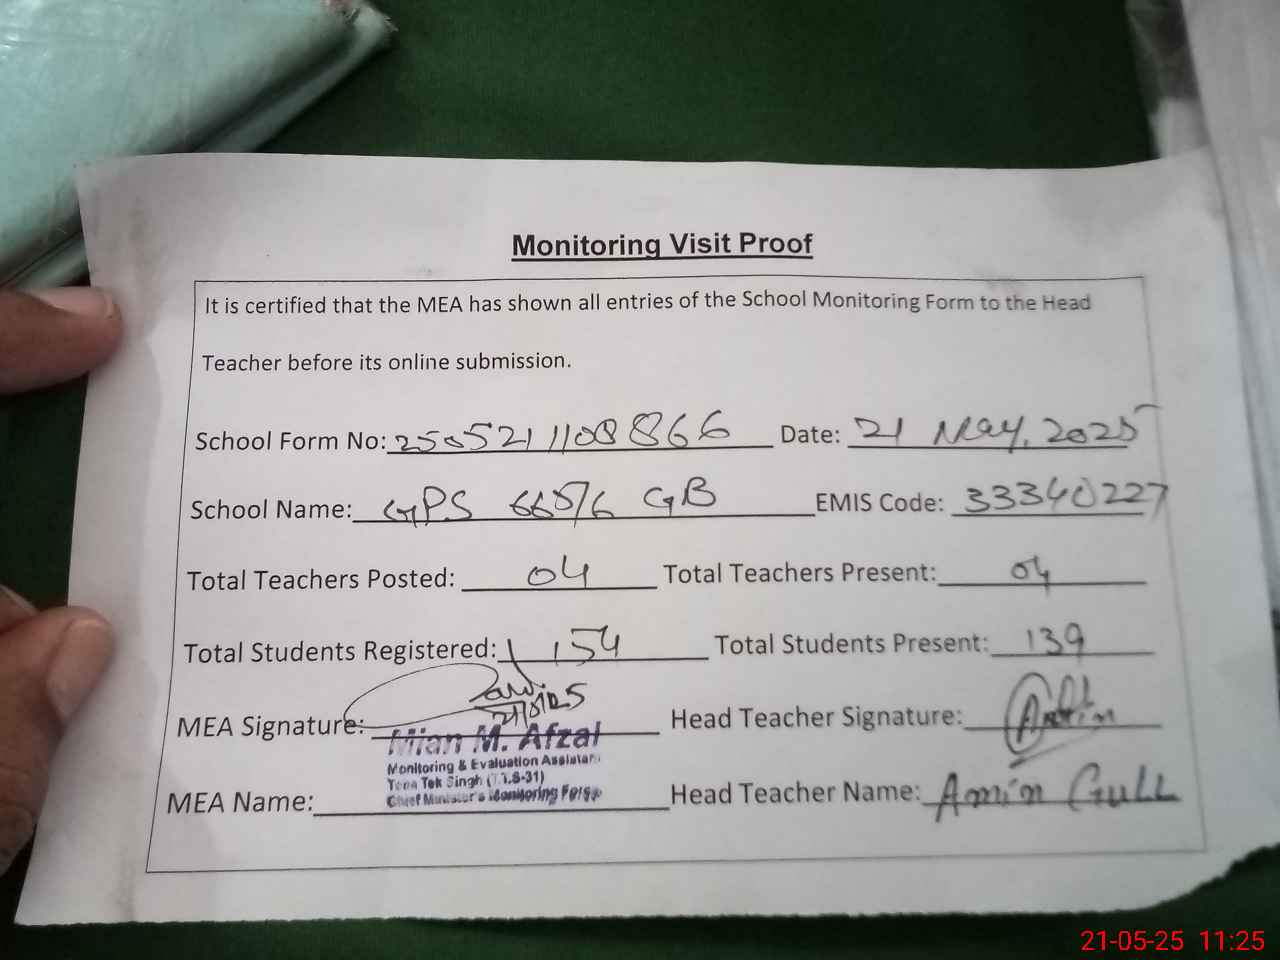 Monitoring Visit Proof
It is certified that the MEA has shown all entries of the School Monitoring Form to the Head
Teacher before its online submission.
School Form No: 250521108866 Date: 21 May, 2025
School Name: GPS 665/6 GB EMIS Code: 33340227
Total Teachers Posted: 04 Total Teachers Present: 04
Total Students Registered: 154 Total Students Present: 139
MEA Signature: Head Teacher Signature: Amin
Mian M. Afzal
Monitoring & Evaluation Assistant
Toba Tek Singh (T.T.S-31)
Chief Minister's Monitoring Force
MEA Name: Head Teacher Name: Amin Gull
21-05-25 11:25